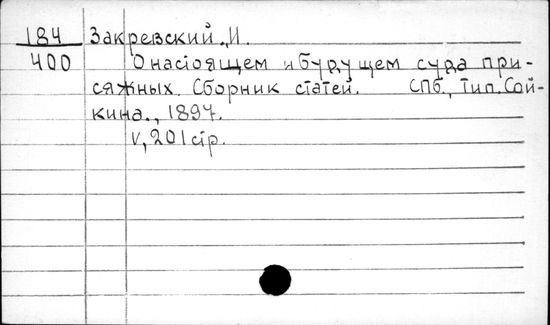 184 Закревский, И.
400 О настоящем и будущем суда при-
сяжных. Сборник статей. СПб., Тип. Сой-
кина., 1897.
V, 201 стр.